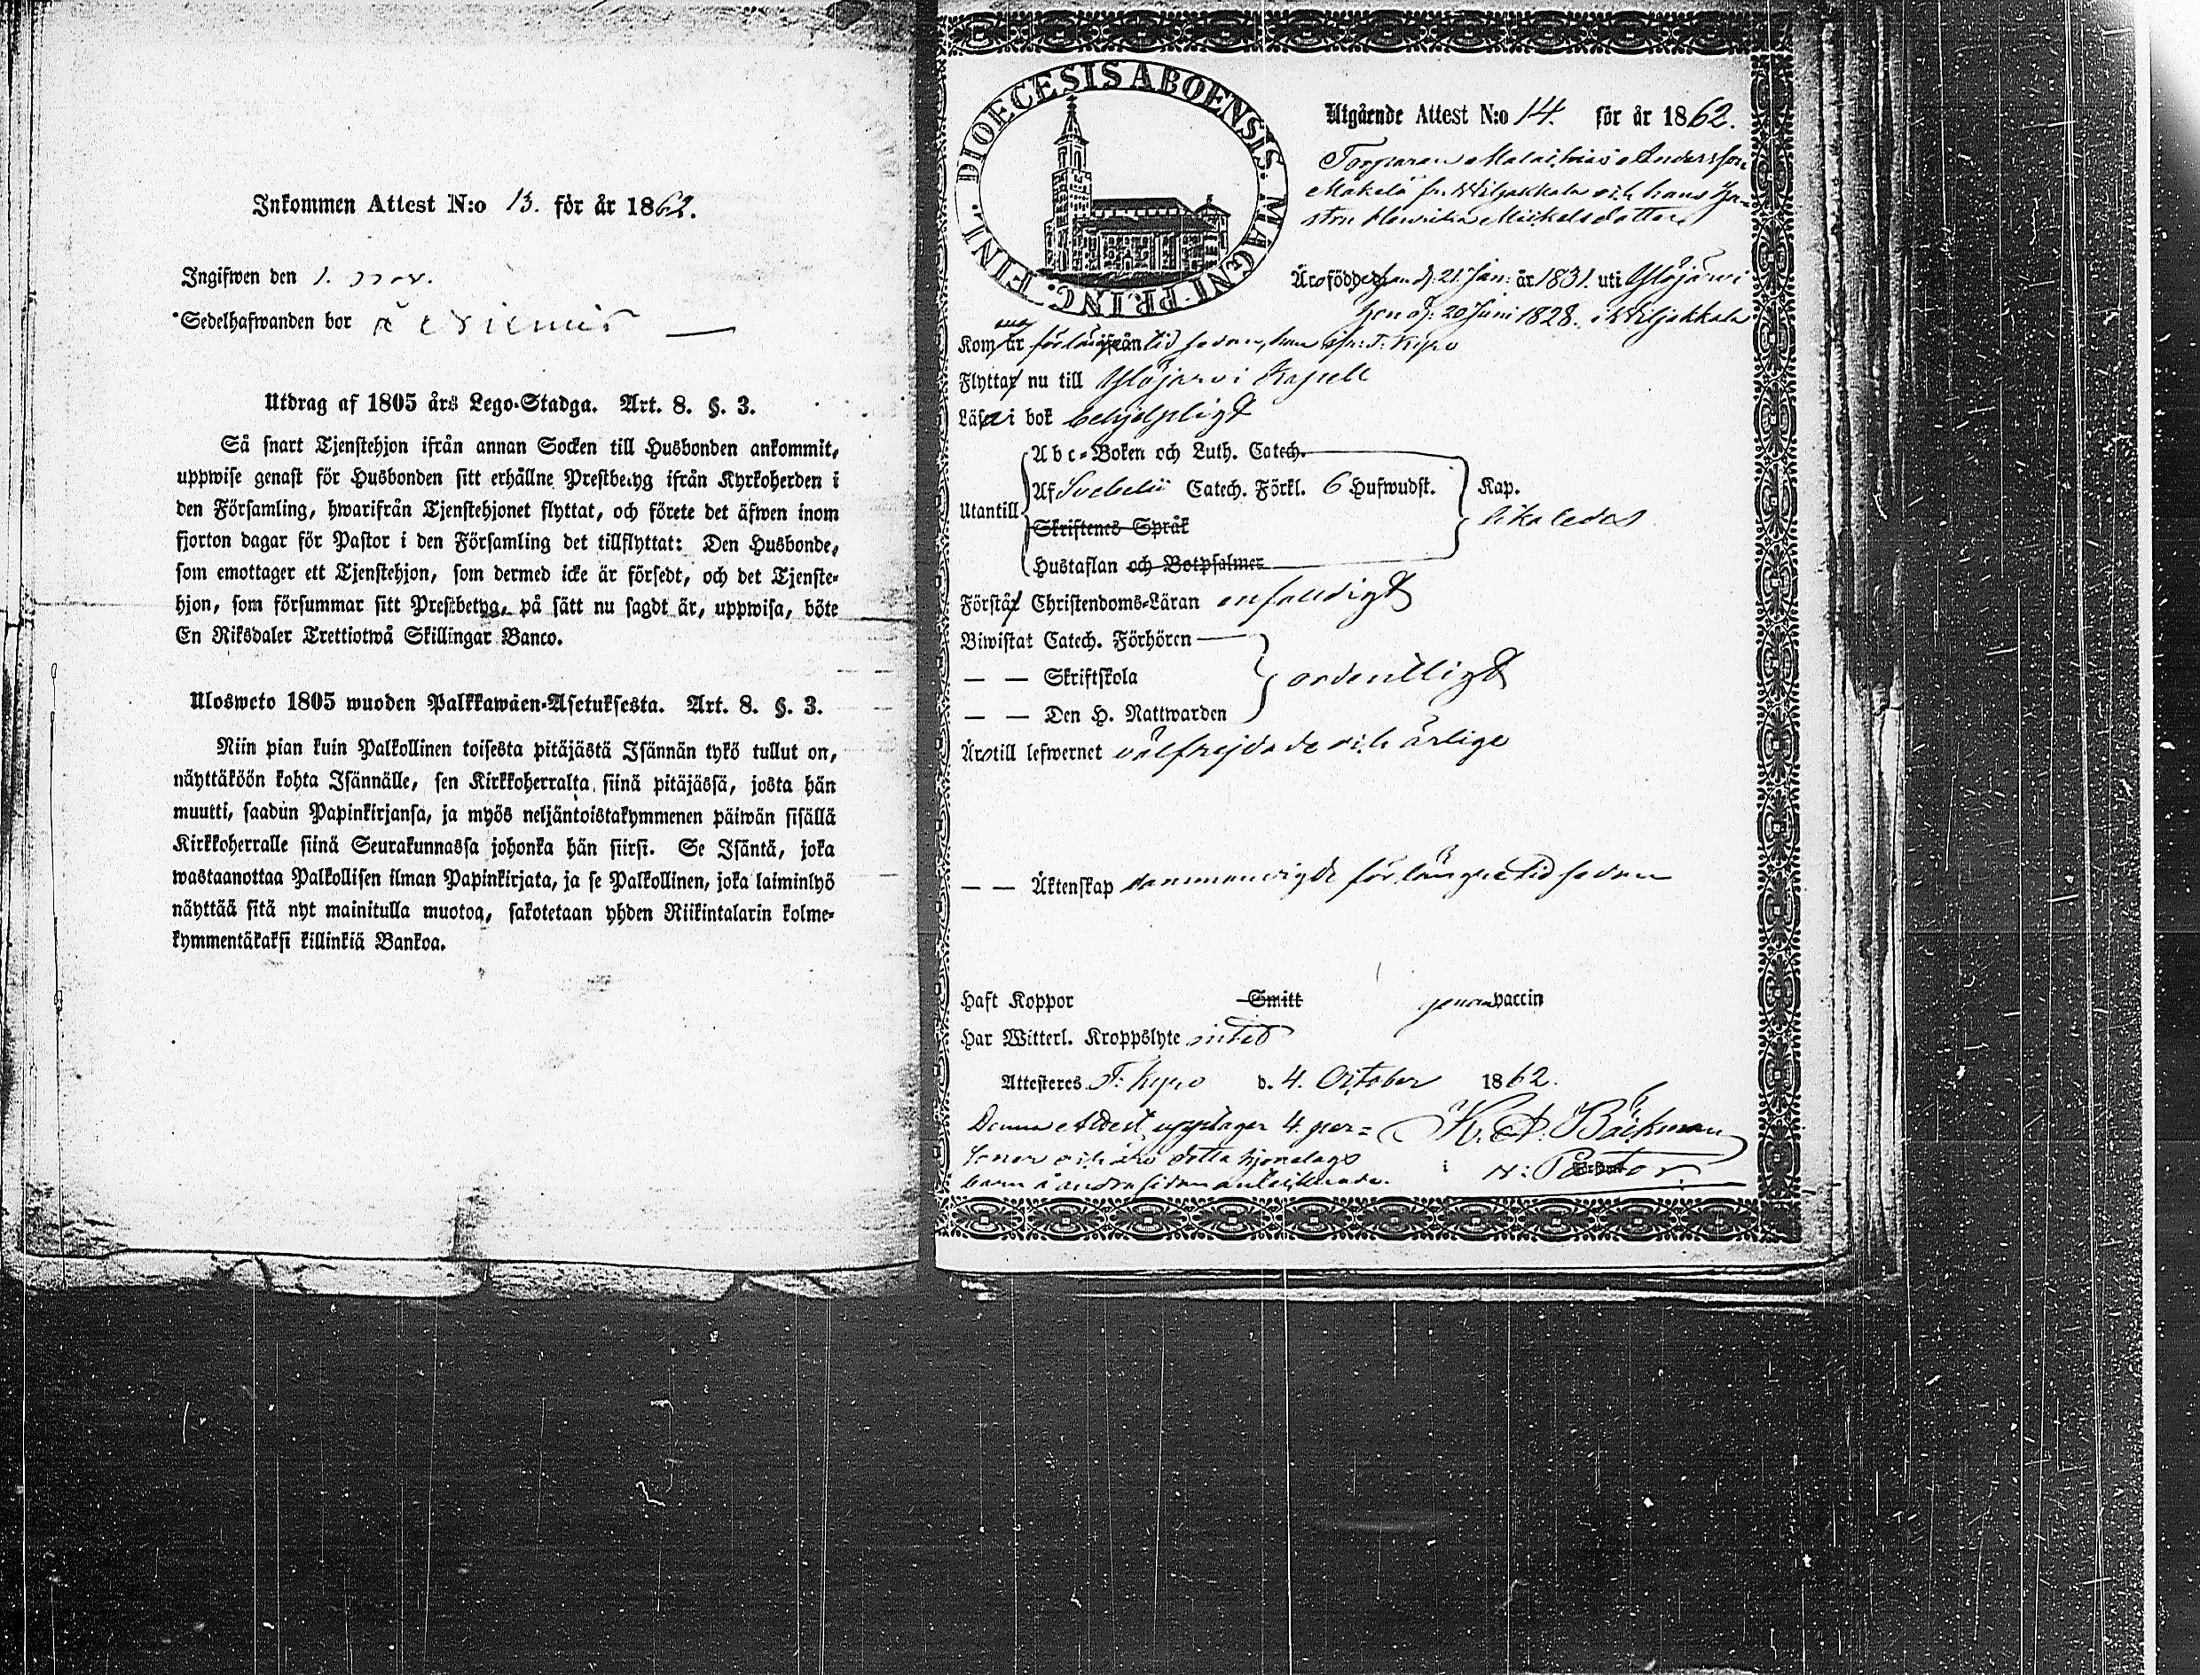 Inkommen Attest N:o 13. för år 1862.
Ingifwen den 1. nov.
Sedelhafwanden bor å
Utdrag af 1805 års Lego-Stadga. Art. 8. §. 3.
Så snart Tjenstehjon ifrån annan Socken till Husbonden ankommit,
uppwise genast för Husbonden sitt erhållne Prestbetyg ifrån Kyrkoherden i
den Församling, hwarifrån Tjenstehjonet flyttat, och förete det äfwen inom
fjorton dagar för Pastor i den Församling det tillflyttat: Den Husbonde,
som emottager ett Tjenstehjon, som dermed icke är försedt, och det Tjenste-
hjon, som försummar sitt Prestbetyg, på sätt nu sagdt är, uppwisa, böte
En Riksdaler Trettiotwå Skillingar Banco.
Ulosweto 1805 wuoden Palkkawäen-Asetuksesta. Art. 8. §. 3.
Niin pian kuin Palkollinen toisesta pitäjästä Isännän tykö tullut on,
näyttäköön kohta Isännälle, sen Kirkkoherralta siinä pitäjässä, josta hän
muutti, saadun Papinkirjansa, ja myös neljäntoistakymmenen päiwän sisällä
Kirkkoherralle siinä Seurakunnassa johonka hän siirsi. Se Isäntä, joka
wastaanottaa Palkollisen ilman Papinkirjata, ja se Palkollinen, joka laiminlyö
näyttää sitä nyt mainitulla muotoa, sakotetaan yhden Riikintalarin kolme-
kymmentäkaksi killinkiä Bankoa.
DIOECESIS ABOENSIS. MAGNI PRINC. FINL.
Utgående Attest N:o 14. för år 1862.
Torparen Mathias Andersson
Mäkelä fr. Wiljakkala och hans Hu-
stru Henrika Mickelsdotter
Äro födde han d. 21. Jan: år 1831. uti Ylöjärvi
hon d. 20 Juni 1828. i Wiljakkala
Kom för längre tid sedan, han ifr: T: Kyro
Flytta nu till Ylöjärvi Kapell
Läsa i bok behjelpligt
Utantill
Abc-Boken och Luth. Catech.
Af Svebelii Catech. Förkl. 6 Hufwudst. Kap.
likaledes
Skriftenes Språk
Hustaflan och Botpsalmer
Förstå Christendoms-Läran enfaldigt
Biwistat Catech. Förhören
— — Skriftskola ordentligt
— — Den H. Nattwarden
Äro till lefwernet välfrejdade och ärlige
— — Äktenskap sammanvigde för längre tid sedan
Haft Koppor Smitt genom vaccin
Har Witterl. Kroppslyte intet
Attesteres T: Kyro d. 4. October 1862.
Denna Attest upptager 4. per=
soner och äro detta hjonelags
barn å andra sidan antecknade.
K. A. Bäckman
i v: Pastor.